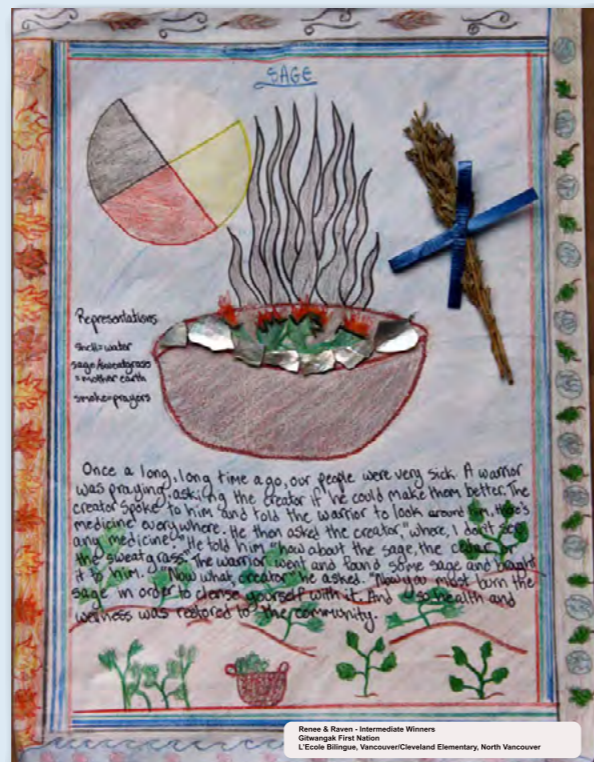 SAGE
Representations
shell=water
sage/sweatgrass
=mother earth
smoke=prayers
Once a long, long time ago, our people were very sick. A warrior
was praying, asking the creator if he could make them better. The
creator spoke to him and told the warrior to look around him. There's
medicine everywhere. He then asked the creator, "where, I don't see
any medicine." He told him "how about the sage, the cedar or
the sweatgrass". The warrior went and found some sage and brought
it to him. "Now what, creator" he asked. "Now you must burn the
sage in order to clense yourself with it. And so health and
wellness was restored to the community.
Renee & Raven - Intermediate Winners
Gitwangak First Nation
L'Ecole Bilingue, Vancouver/Cleveland Elementary, North Vancouver